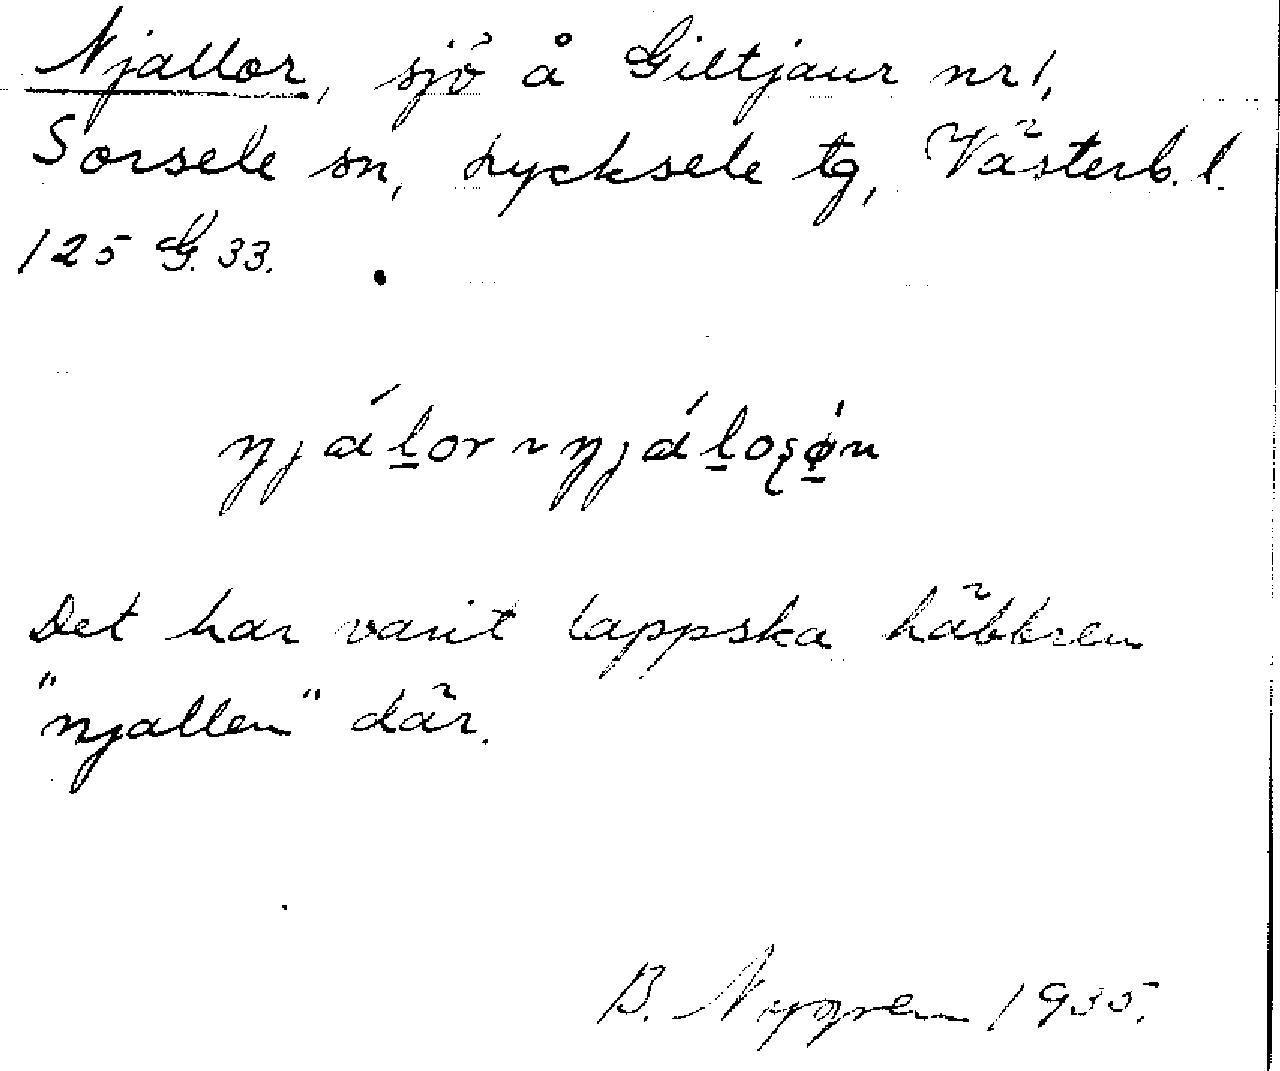 Njallor, sjö å Giltjaur nr 1,
Sorsele sn, Lycksele tg, Västerb. l.
125 G. 33.
ŋjálor ~ ŋjálosøn
Det har varit lappska häbbren
"njallen" där.
B. Nygren 1935.